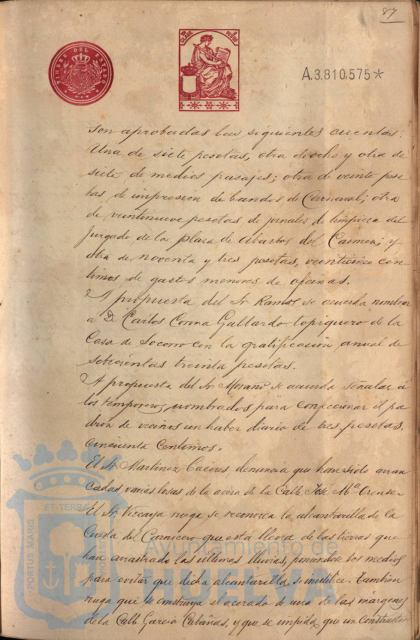 87
TIMBRE DEL ESTADO
A.3.810.575*
son aprobadas las siguientes cuentas:
Una de siete pesetas, otra de ocho y otra de
siete de medios pasajes; otra de veinte pese
tas de impresion de bandos de Carnaval; otra
de veintinueve pesetas de jornales de limpieza del
Juzgado de la plaza de Abastos del Carmen; y
otra de noventa y tres pesetas, veinticinco cen
timos de gastos menores de oficinas.
A propuesta del Sr. Ramos se acuerda nombrar
a D. Carlos Corma Gallardo topiquero de la
Casa de Socorro con la gratificación anual de
setecientas treinta pesetas.
A propuesta del Sr. se acuerda señalar a
los temporeros, nombrados para confeccionar el pa
drón de vecinos un haber diario de tres pesetas,
cincuenta centimos.
El Sr. Martinez Caceres denuncia que han sido arran
cadas varias losas de la acera de la Calle José Mª Orense.
El Sr. Vizcaya ruega se reconozca la alcantarilla de la
Cuesta del Carnicero que está llena de las tierras que
han arrastrado las ultimas lluvias, poniendose los medios
para evitar que dicha alcantarilla se inutilice. Tambien
ruega que se construya el acerado de una de las margenes
de la Calle Garcia Cabañas, y que se impida que un
Ayuntamiento de
HUELVA
PORTUS MARIS ET TERRAE